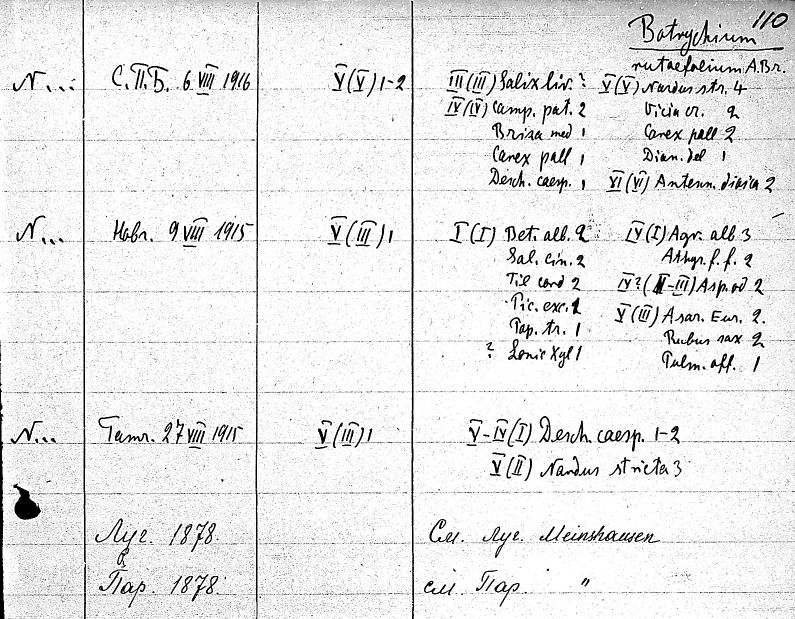 110
Botrychium
rutaefolium A.Br.
N... С.П.Б. 6 VIII 1916 V(V)1-2 III(III) Salix liv.? V(V) Nardus str. 4
IV(IV) Camp. pat. 2 Vicia cr. 2
Briza med 1 Carex pall 2
Carex pall 1 Dian. del 1
Desch. caesp. 1 VI(VI) Antenn. dioica 2
N... Новг. 9 VIII 1915 V(III)1 I(I) Bet. alb. 2 IV(I) Agr. alb 3
Sal. cin. 2 Athyr. f. f. 2
Til cord 2 IV?(II-III) Asp. od 2
Pic. exc. 1 V(III) Asar. Eur. 2.
Pop. tr. 1 Rubus sax 2
? Lonic Xyl 1 Pulm. off. 1
N... 27 VIII 1915 V(III)1 V-IV(I) Desch. caesp. 1-2
V(II) Nardus stricta 3
Луг. 1878. См. Луг. Meinshausen
Пар. 1878. см. Пар. "